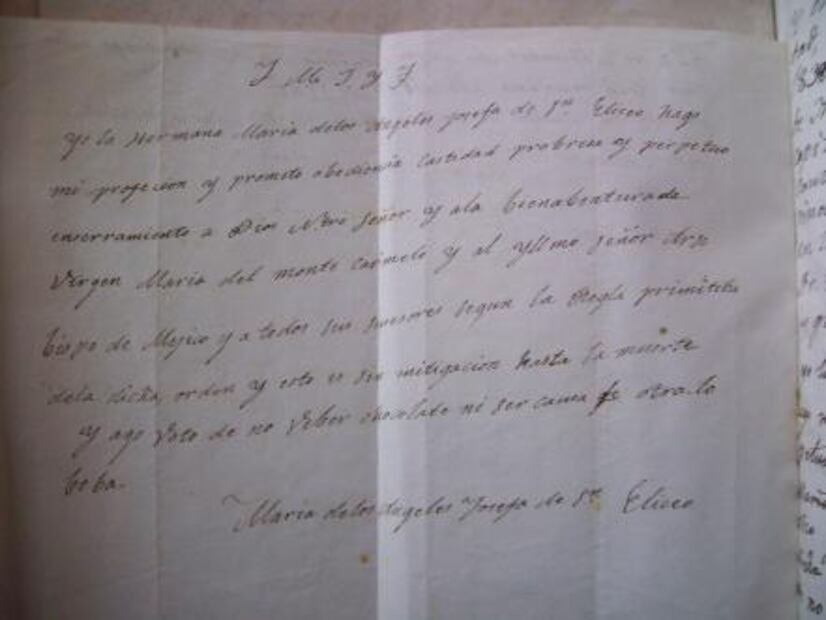 J M J Y J
Yo la Hermana Maria delos Angeles Josefa de Sn Eliceo hago
mi profecion y promето obediencia Castidad probresa y perpetuo
enserramiento a Dios Ntro Señor y ala bienabenturada
Virgen Maria del monte Carmelo y al Yllmo Señor Arso
bispo de Mejico y a todos sus susesores segun la Regla primitiba
dela dicha orden y esto es sin mitigacion hasta la muerte
y ago Voto de no Veber chocolate ni ser causa otra lo
beba.
Maria delos Angeles Josefa de Sn Eliceo